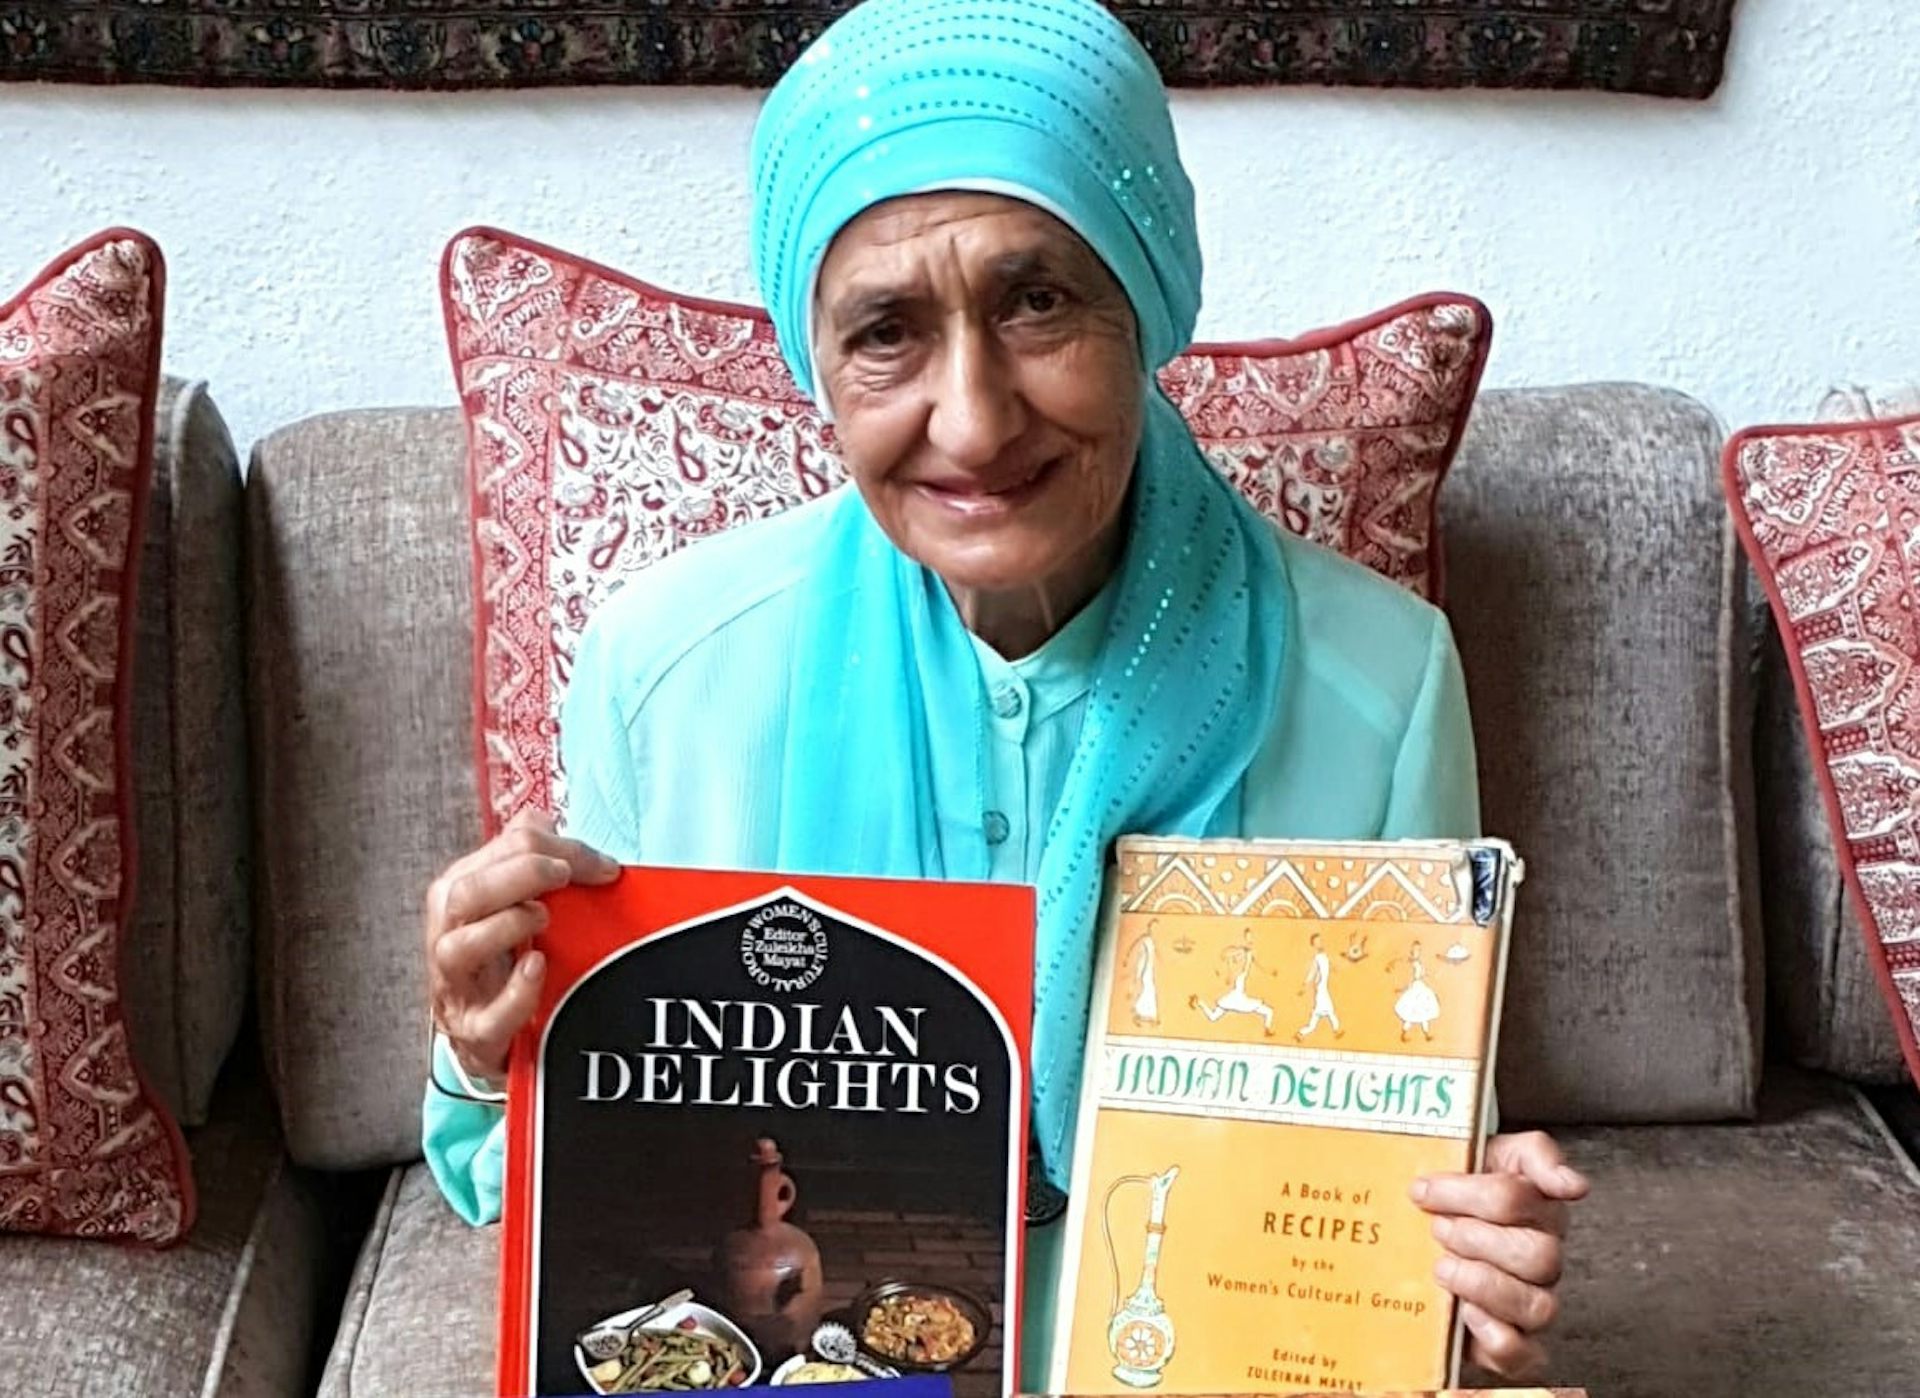 WOMEN'S CULTURAL GROUP
Editor
Zuleikha
Mayat
INDIAN
DELIGHTS
INDIAN DELIGHTS
A Book of
RECIPES
by the
Women's Cultural Group
Edited by
ZULEIKHA MAYAT